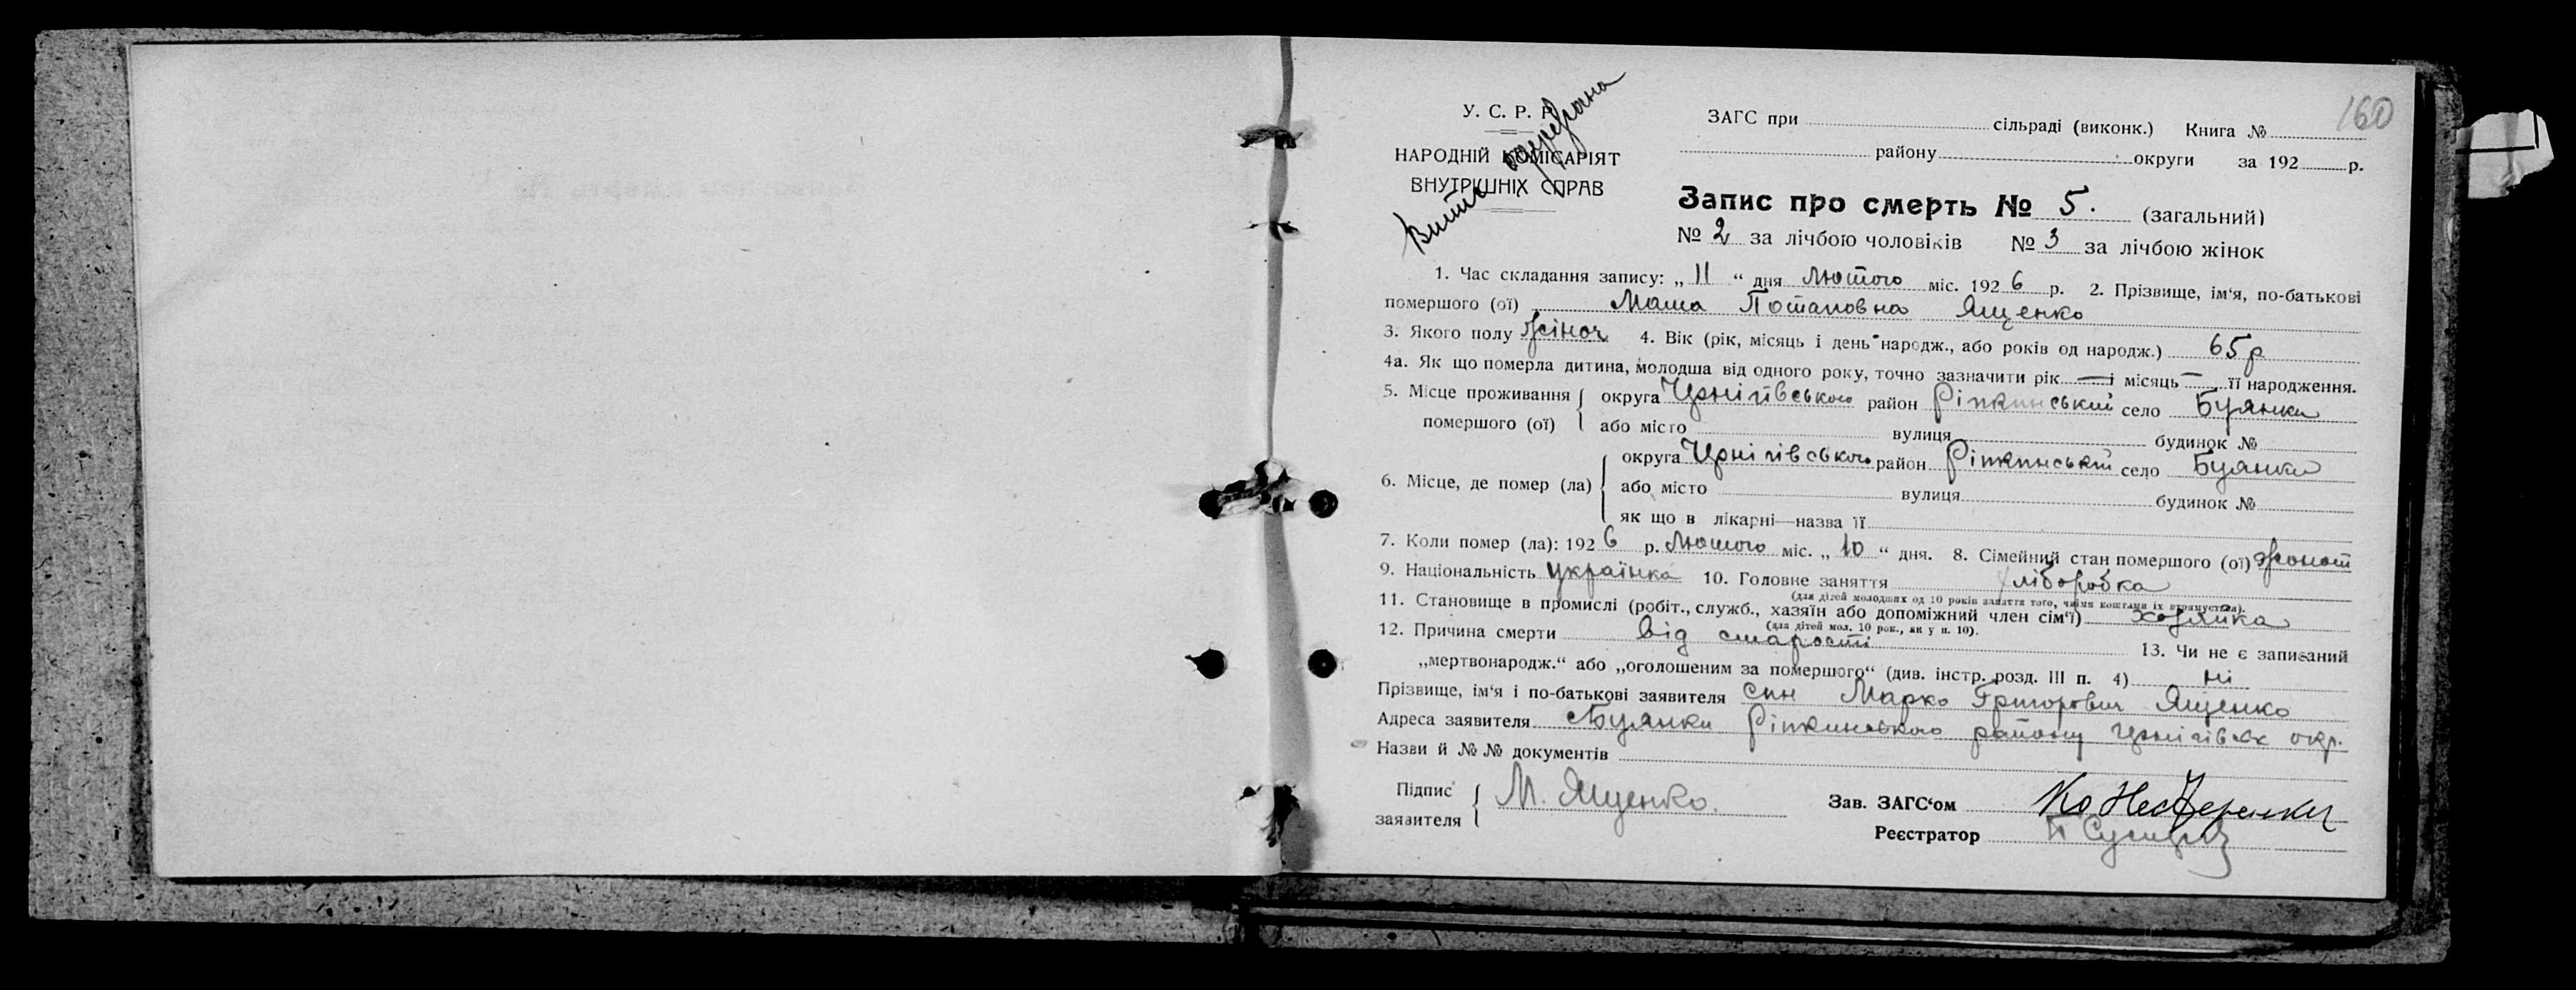 160
У. С. Р. Р.
НАРОДНІЙ КОМІСАРІЯТ
ВНУТРІШНІХ СПРАВ
ЗАГС при сільраді (виконк.) Книга №
району округи за 192 р.
Запис про смерть № 5. (загальний)
№ 2 за лічбою чоловіків № 3 за лічбою жінок
1. Час складання запису: „ 11 “ дня Лютого міс. 192 6 р. 2. Прізвище, ім‘я, по-батькові
помершого (ої) Маша Потаповна Ященко
3. Якого полу жіноч 4. Вік (рік, місяць і день народж., або років од народж.) 65 р
4а. Як що померла дитина, молодша від одного року, точно зазначити рік — і місяць — її народження.
5. Місце проживання помершого (ої) округа Чернігівського район Ріпкинський село Буянки
або місто вулиця будинок №
6. Місце, де помер (ла) округа Чернігівського район Ріпкинський село Буянки
або місто вулиця будинок №
як що в лікарні—назва її
7. Коли помер (ла): 192 6 р. Лютого міс. „ 10 “ дня. 8. Сімейний стан помершого (ої)
9. Національність українка 10. Головне заняття хліборобка
(для дітей молодших од 10 років заняття того, чиїми коштами їх втримується).
11. Становище в промислі (робіт., служб., хазяїн або допоміжний член сім‘ї) хозяйка
(для дітей мол. 10 рок., як у п. 10).
12. Причина смерти від старості 13. Чи не є записаний
„мертвонародж.“ або „оголошеним за помершого“ (див. інстр. розд. III п. 4) ні
Прізвище, ім‘я і по-батькові заявителя син Марко Григорович Ященко
Адреса заявителя с Буянки Ріпкинського району окр.
Назви й №№ документів
Підпис заявителя М. Ященко. Зав. ЗАГС‘ом
Реєстратор